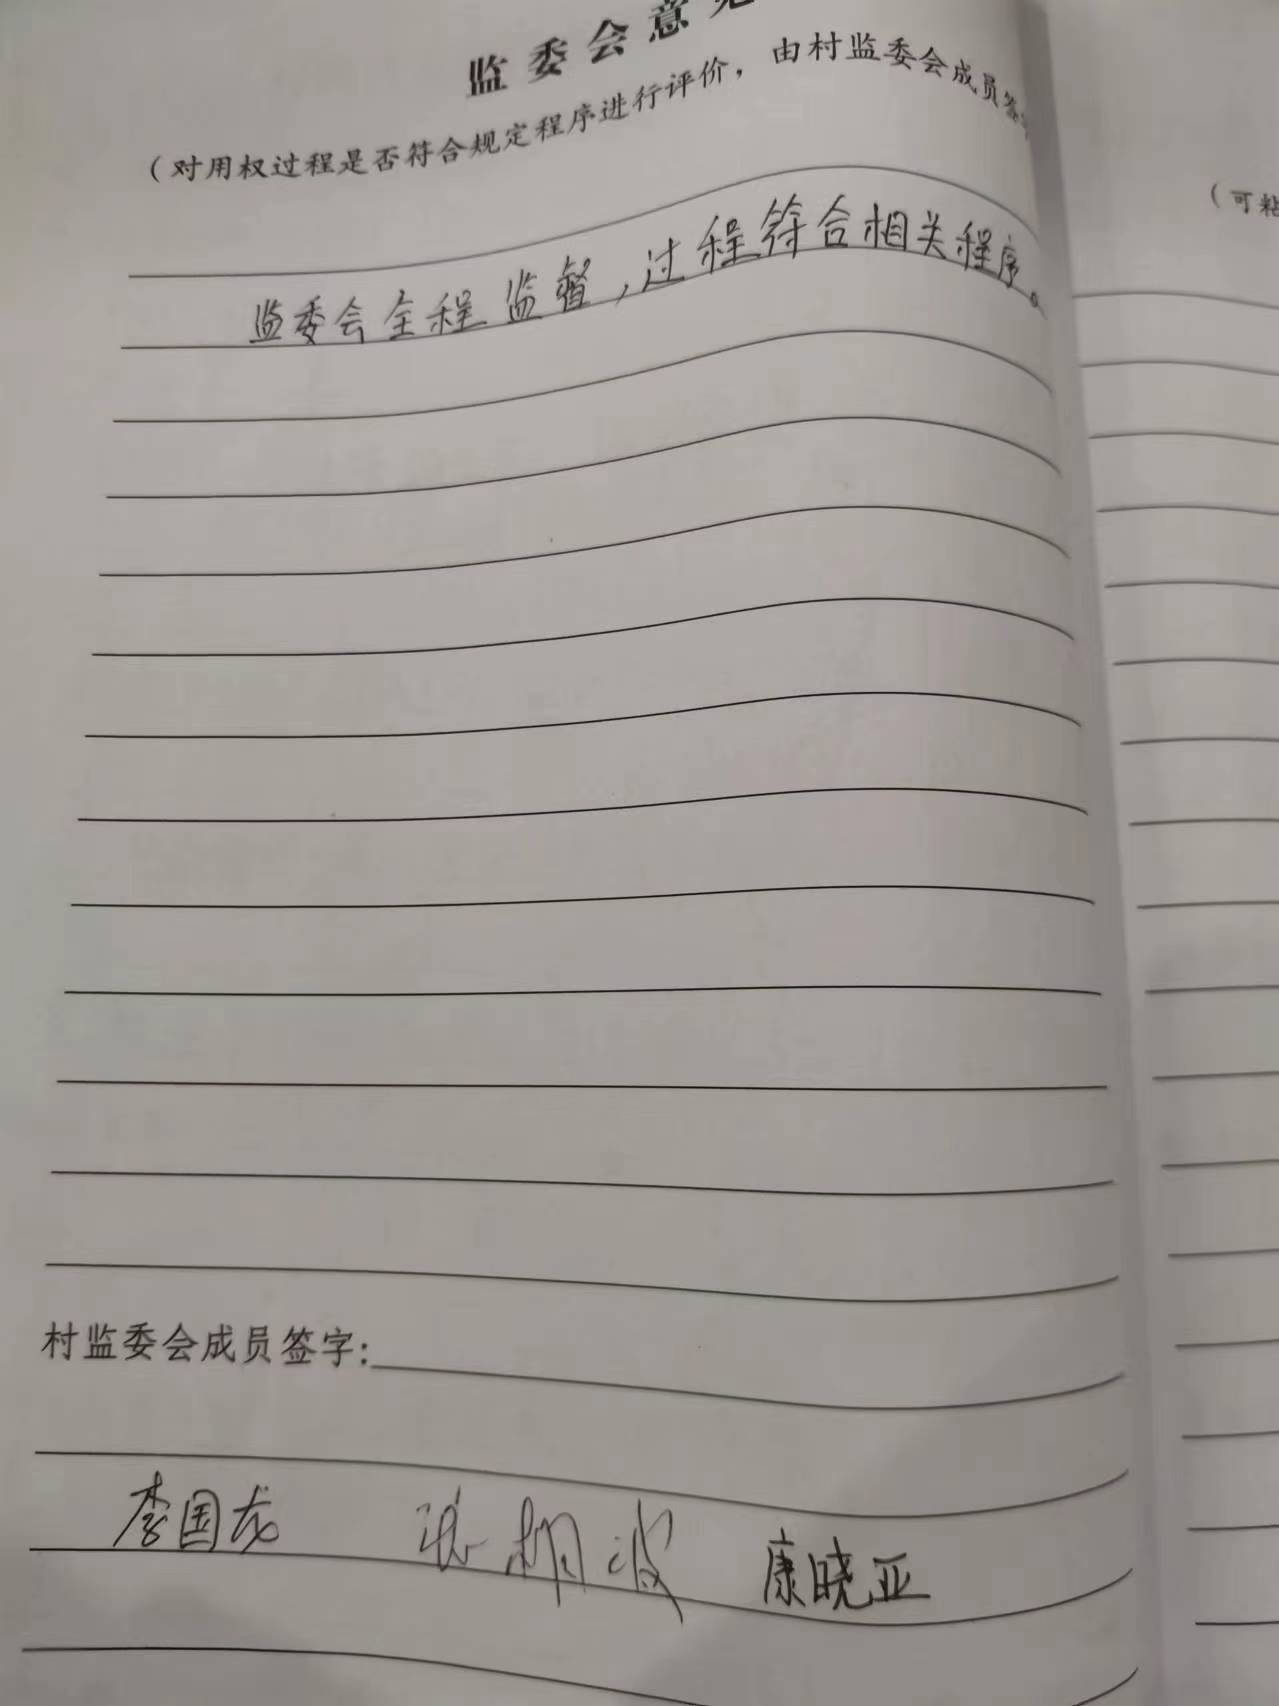 监委会意见
（对用权过程是否符合规定程序进行评价，由村监委会成员签字
监委会全程监督，过程符合相关程序。
（可粘
村监委会成员签字：
李国龙 康晓亚